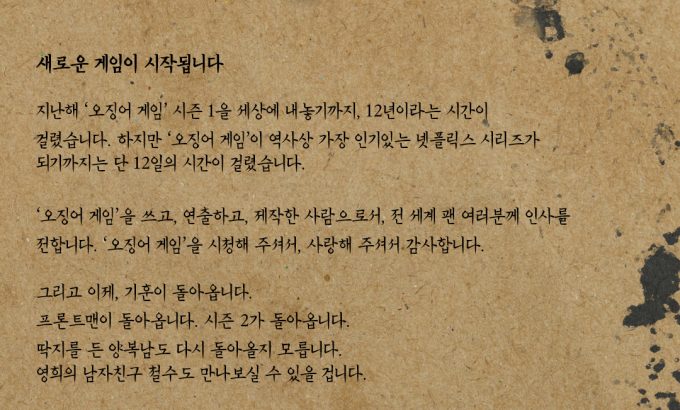 새로운 게임이 시작됩니다
지난해 ‘오징어 게임’ 시즌 1을 세상에 내놓기까지, 12년이라는 시간이
걸렸습니다. 하지만 ‘오징어 게임’이 역사상 가장 인기있는 넷플릭스 시리즈가
되기까지는 단 12일의 시간이 걸렸습니다.
‘오징어 게임’을 쓰고, 연출하고, 제작한 사람으로서, 전 세계 팬 여러분께 인사를
전합니다. ‘오징어 게임’을 시청해 주셔서, 사랑해 주셔서 감사합니다.
그리고 이제, 기훈이 돌아옵니다.
프론트맨이 돌아옵니다. 시즌 2가 돌아옵니다.
딱지를 든 양복남도 다시 돌아올지 모릅니다.
영희의 남자친구 철수도 만나보실 수 있을 겁니다.